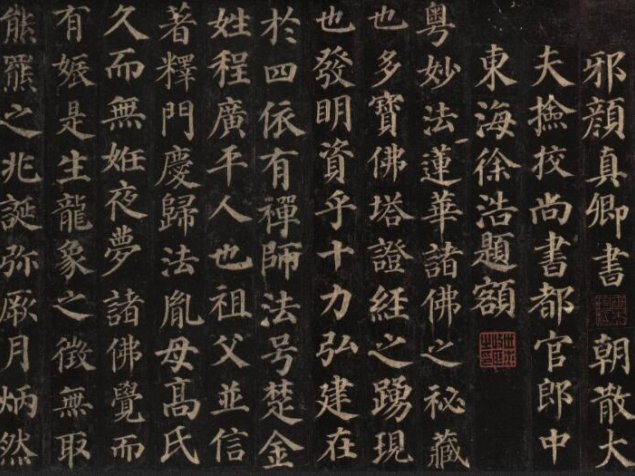 邪顏真卿書 朝散大
夫撿挍尚書都官郎中
東海徐浩題額
粵妙法蓮華諸佛之秘藏
也多寶佛塔證經之踴現
也發明資乎十力弘建在
於四依有禪師法号楚金
姓程廣平人也祖父並信
著釋門慶歸法胤母高氏
久而無姙夜夢諸佛覺而
有娠是生龍象之徵無取
熊羆之兆誕弥厥月炳然